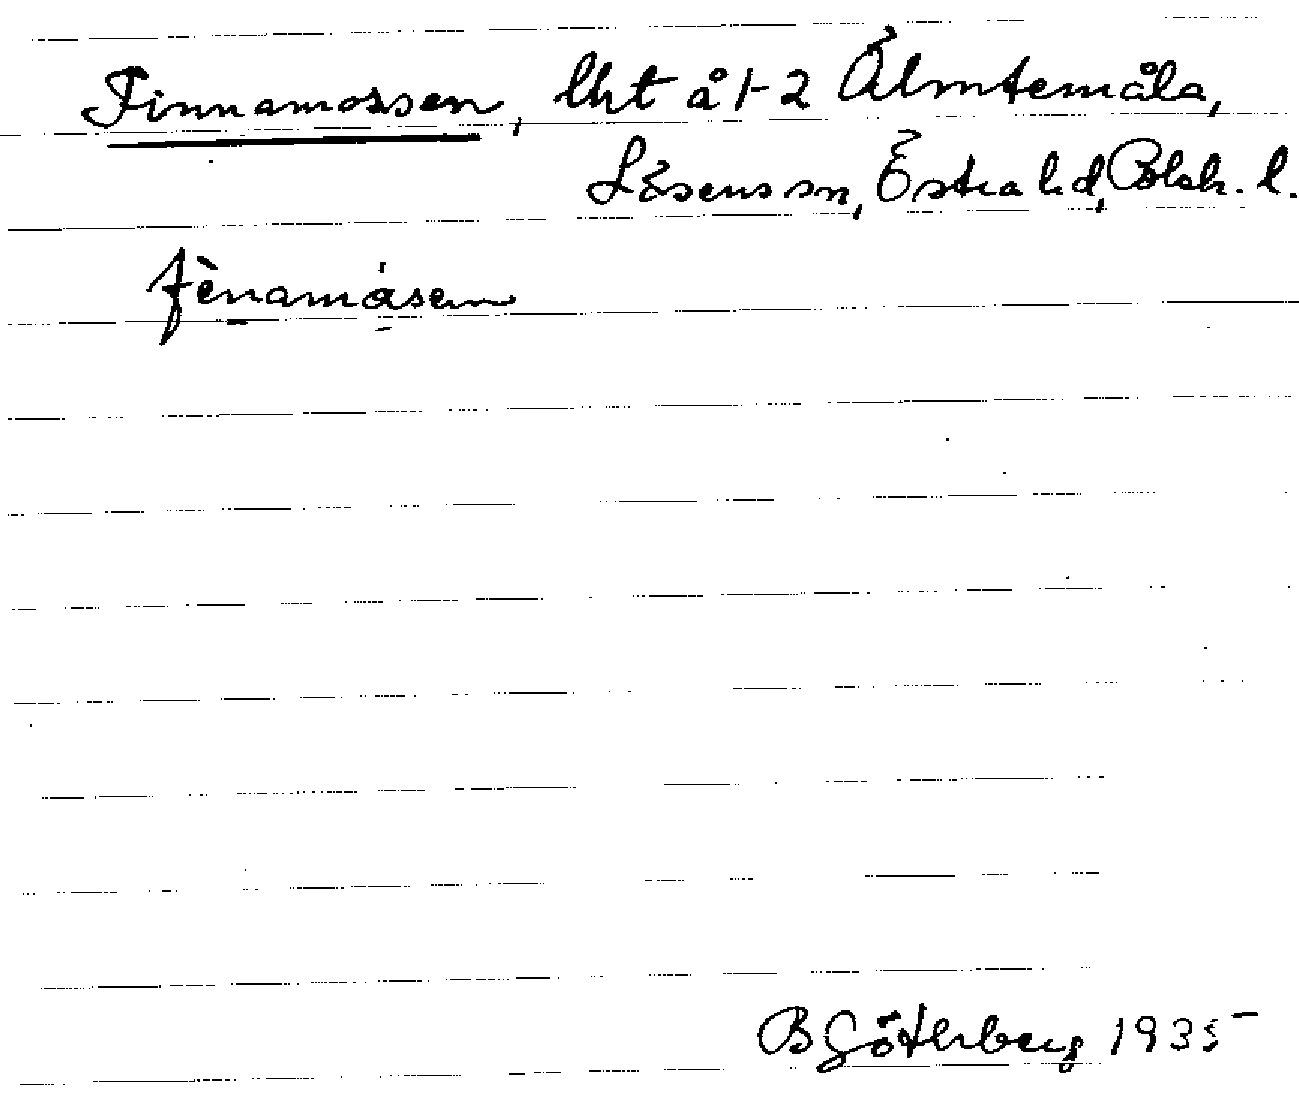 Finnamossen, lht å 1-2 Älmtemåla,
Lösens sn, Östra hd, Blek. l.
fènamåsen
B Götherberg 1935